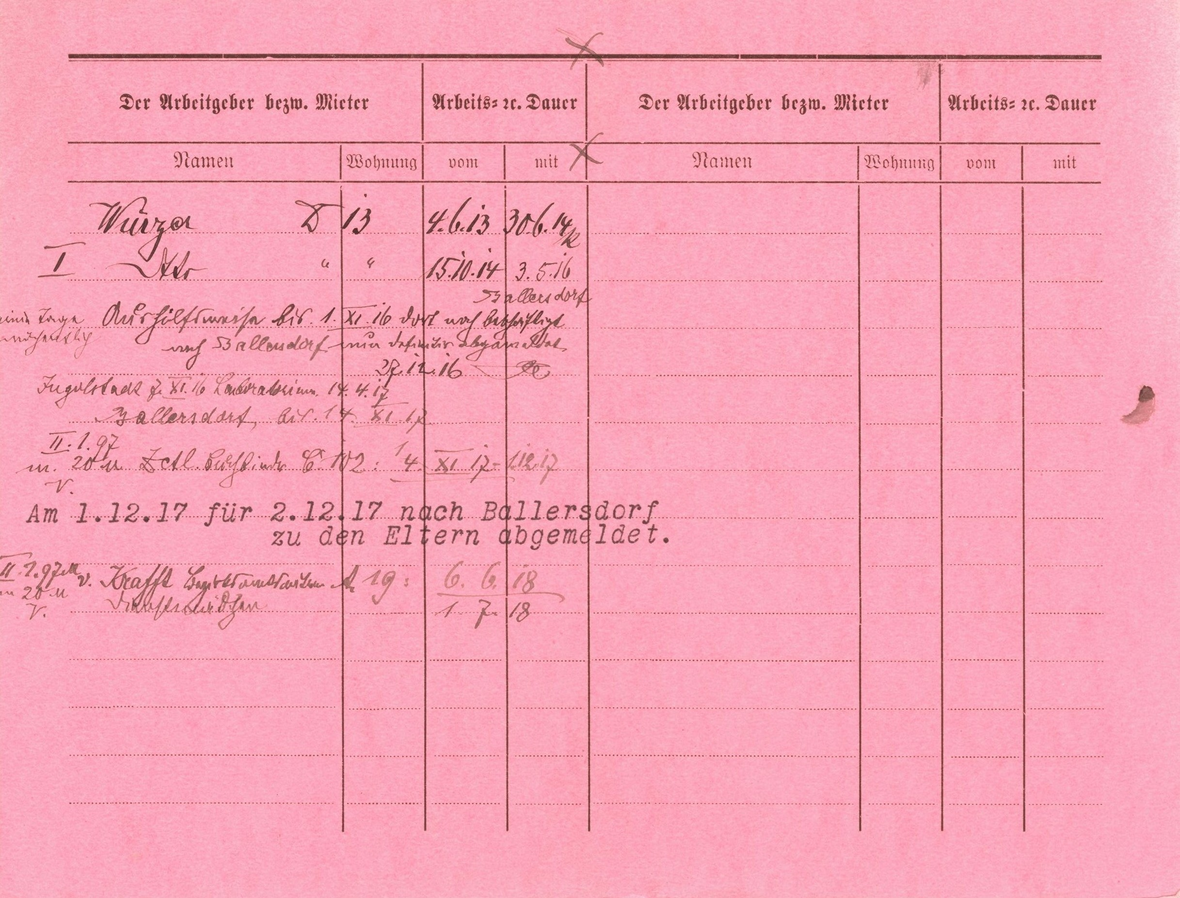 Der Arbeitgeber bezw. Mieter Arbeits= ꝛc. Dauer Der Arbeitgeber bezw. Mieter Arbeits= ꝛc. Dauer
Namen Wohnung vom mit Namen Wohnung vom mit
Würzer D 13 4.6.13 30 6. 14
I Dto " " 15.10.14 3.5.16
Ballersdorf
Aushilfsweise bis 1. XI. 16 dort noch beschäftigt
nach Ballersdorf nun definitiv abgemeldet
27.12.16
Ingolstadt XI. 16 Laboratorium 14.4.17
Ballersdorf, bis 14. XI. 17
II. 1. 97
m. 20 M Zctl. 102: 14. XI. 17 - 1.12.17
V.
Am 1.12.17 für 2.12.17 nach Ballersdorf
zu den Eltern abgemeldet.
II. 1. 97 v. Krafft A. 19: 6. 6. 18
20 M Dienstmädchen 1. 7. 18
V.